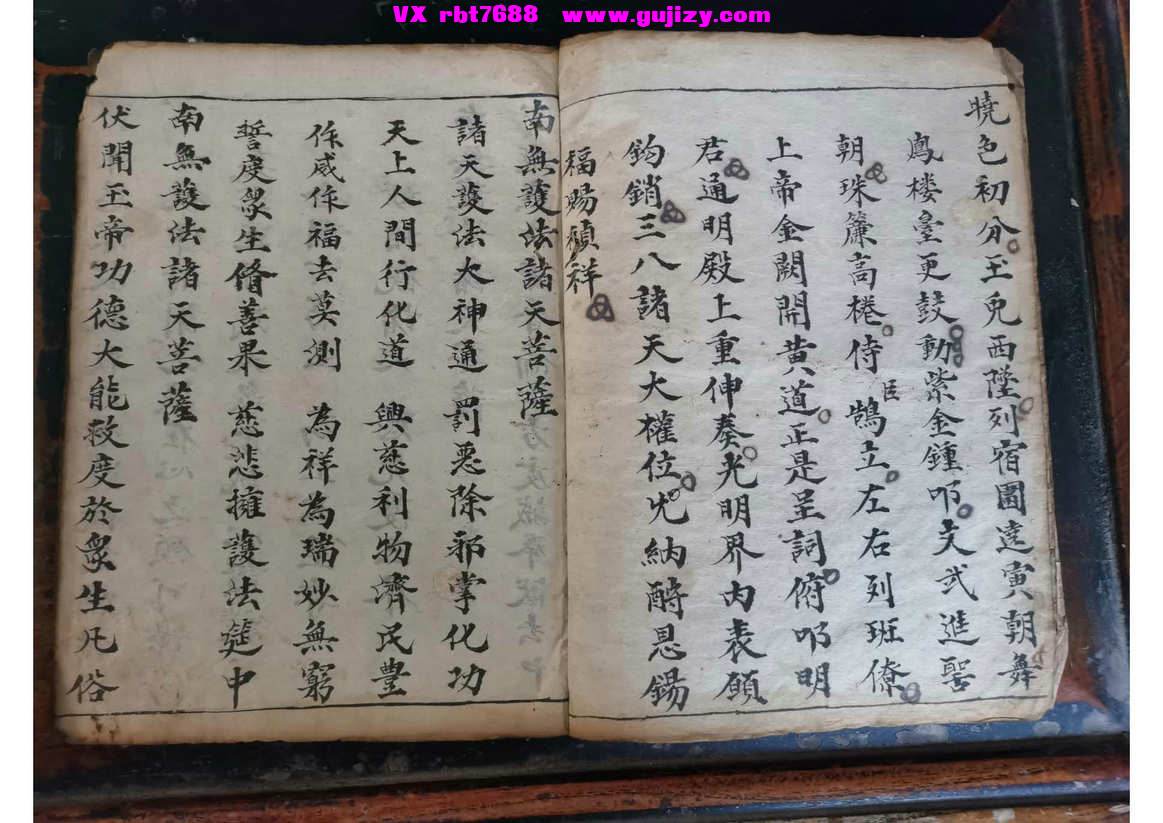 VX rbt7688 www.gujizy.com
曉色初分玉兎西墜列宿圍遶寅朝舞
鳳楼臺更鼓動紫金鍾叩文武進聖
朝珠簾高捲侍臣鵠立左右列班僚
上帝金闕開黄道正是呈詞俯叩明
君通明殿上重伸奏光明界内表願
鈞銷三八諸天大權位光納酧恩錫
福賜禎祥
南無護法諸天菩薩
諸天護法大神通 罰惡除邪掌化功
天上人間行化道 興慈利物濟民豊
作威作福去莫測 為祥為瑞妙無窮
誓度眾生脩善果 慈悲擁護法筵中
南無護法諸天菩薩
伏聞玉帝功德大能救度於眾生凡俗